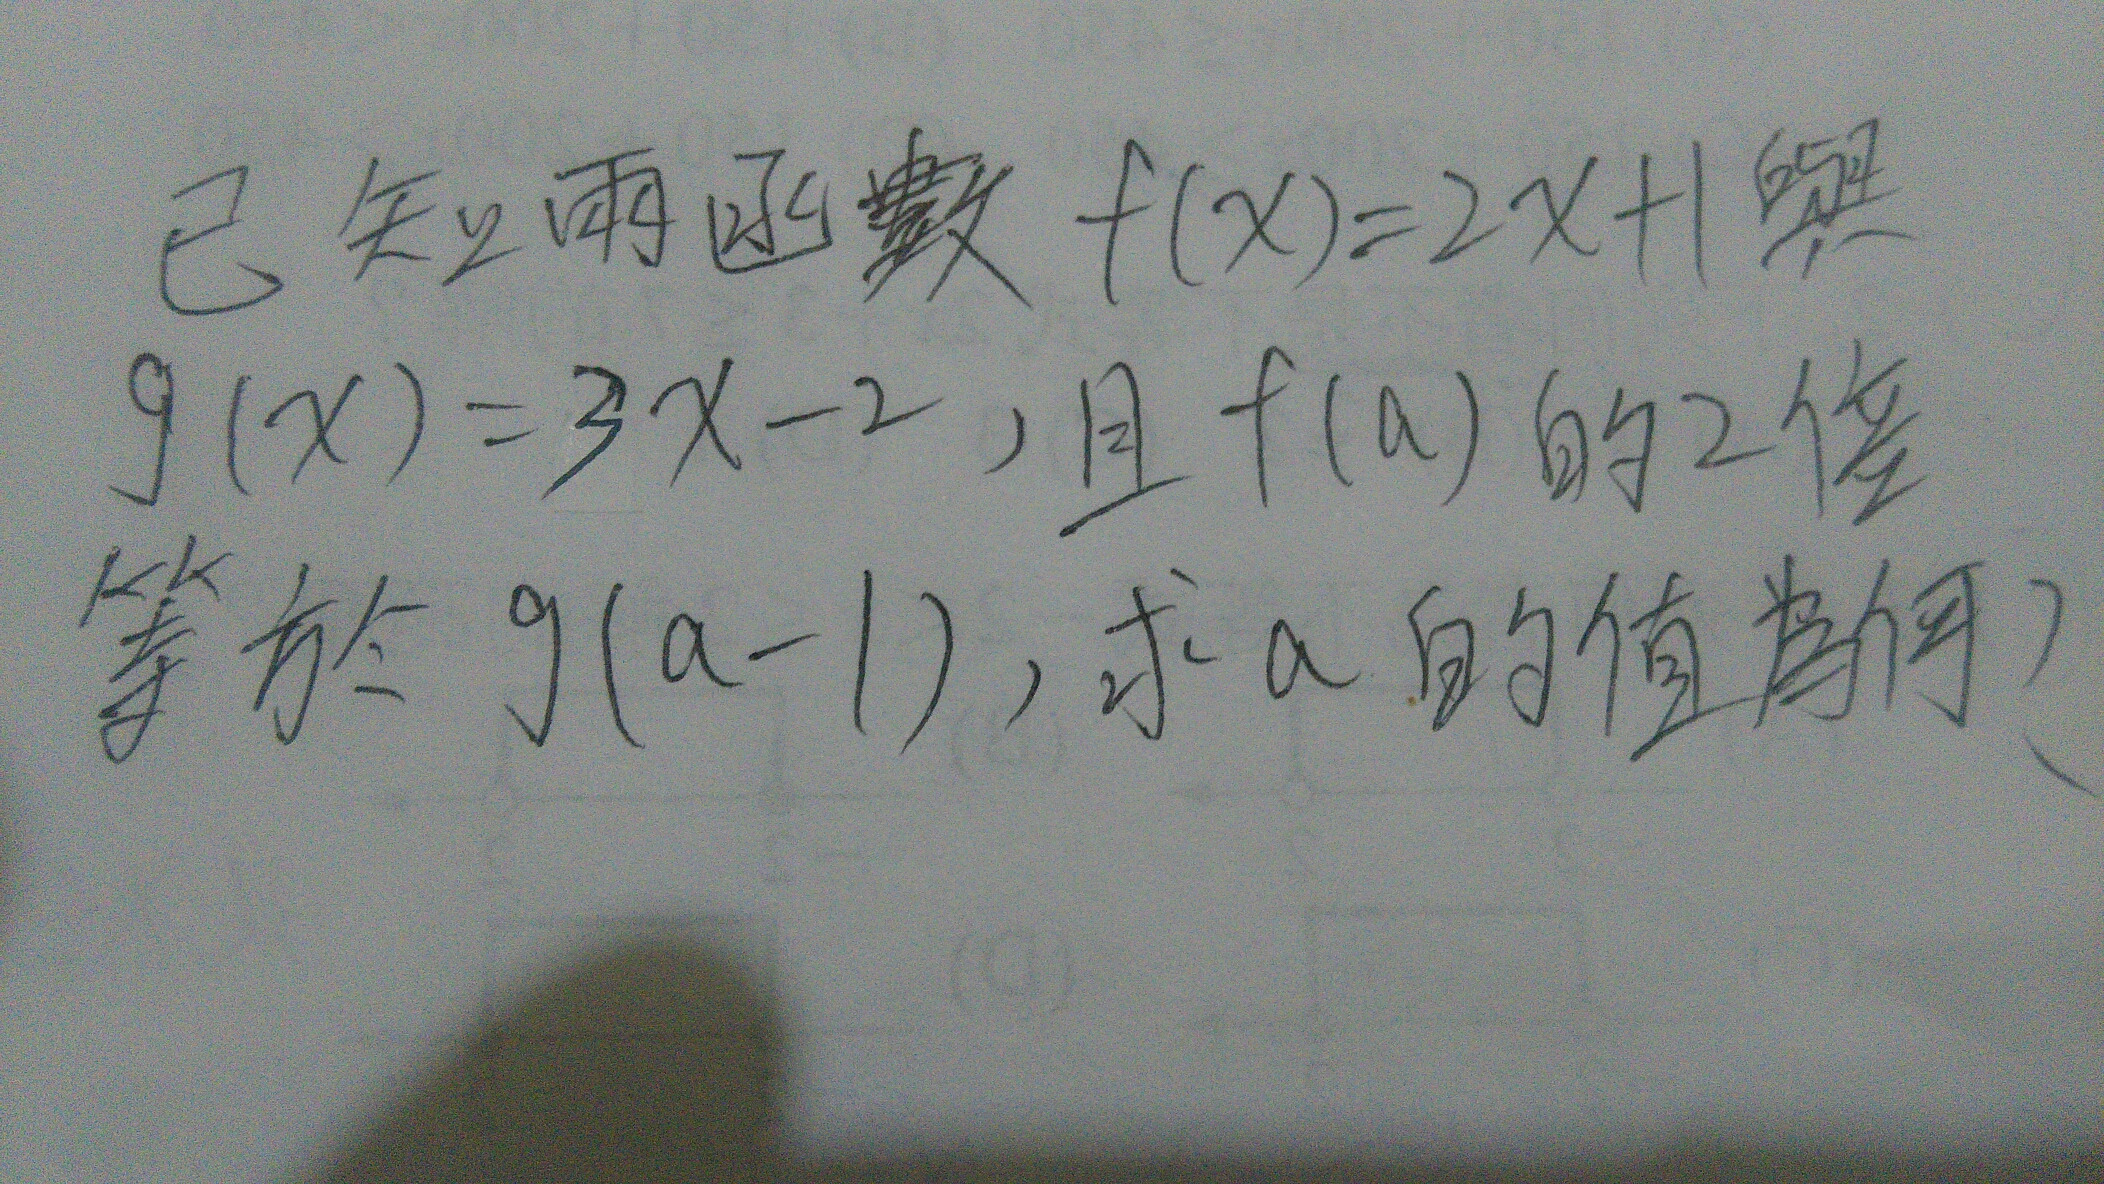 已知兩函數 f(x)=2x+1與
g(x)=3x-2,且f(a)的2倍
等於 g(a-1),求a的值為何?